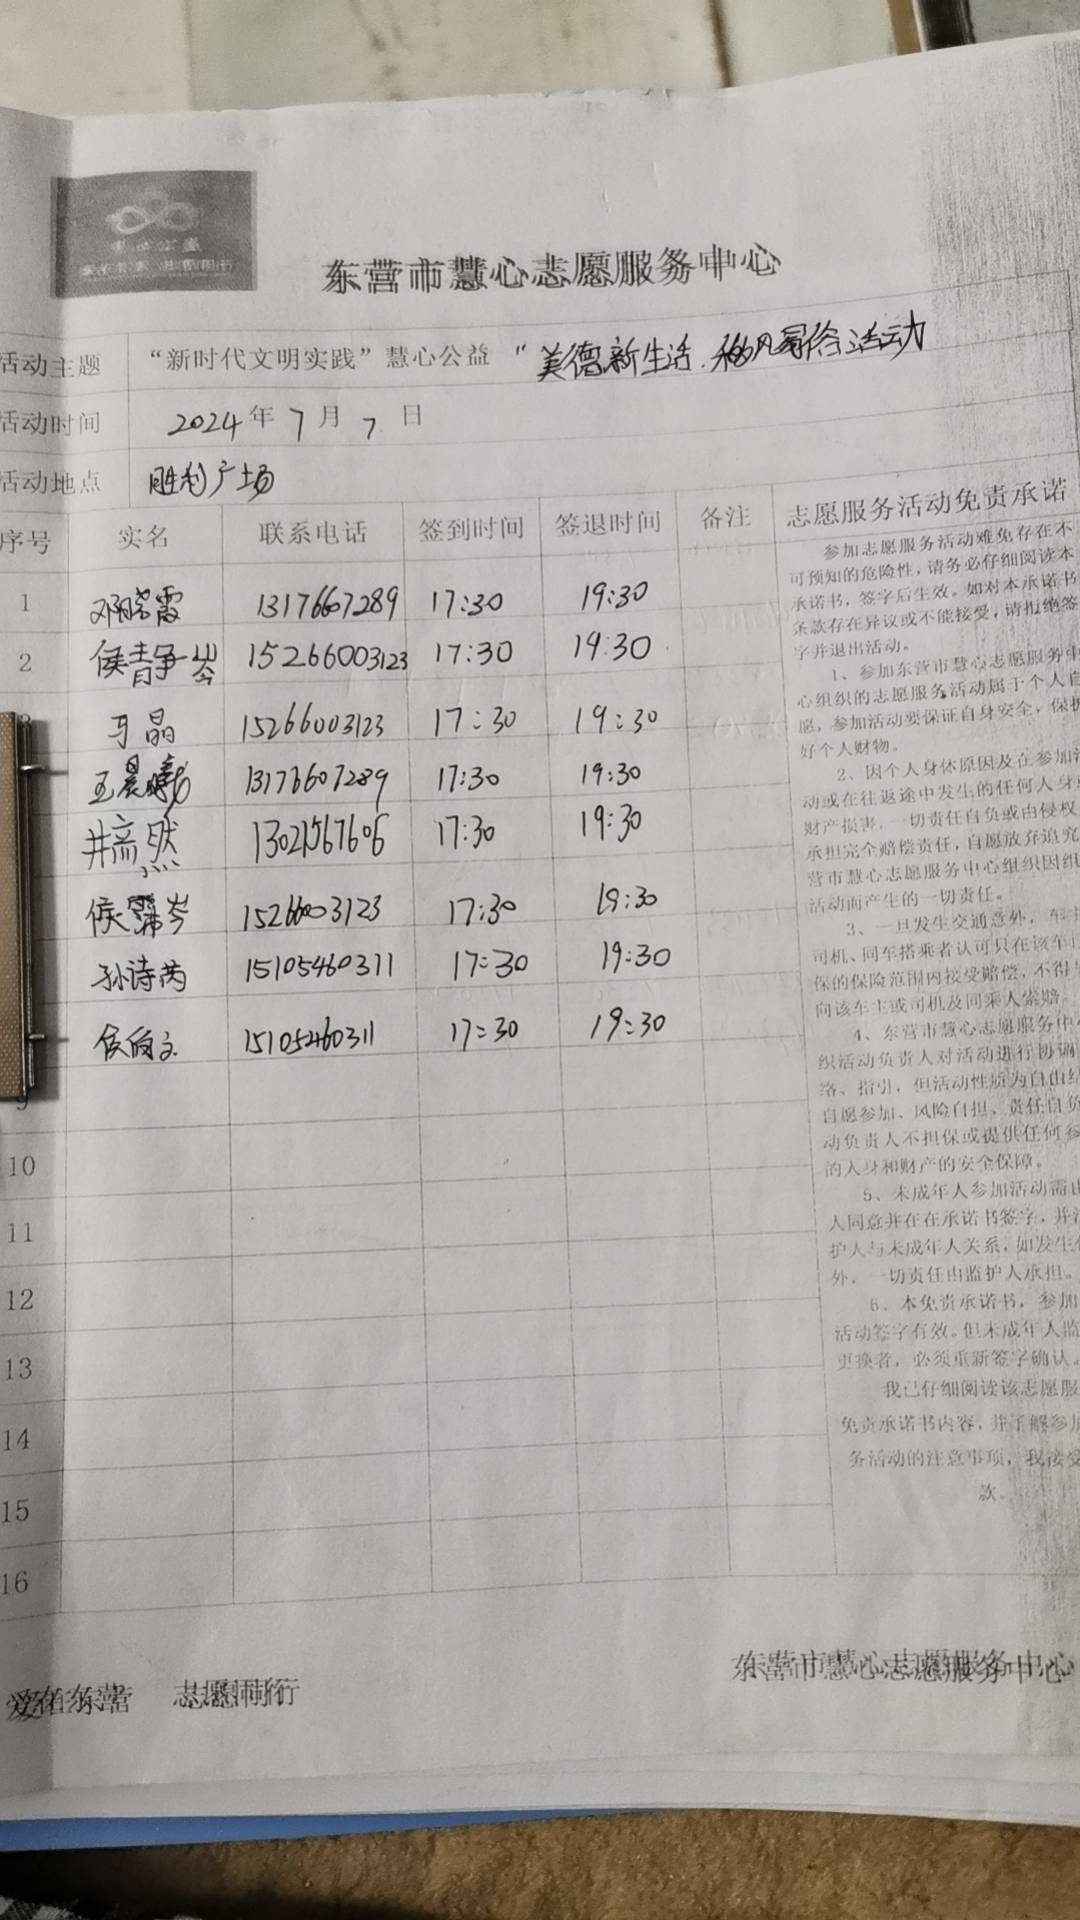 东营市慧心志愿服务中心
活动主题 “新时代文明实践”慧心公益 “美德新生活.移风易俗活动
活动时间 2024年7月7日
活动地点 胜利广场
序号 实名 联系电话 签到时间 签退时间 备注 志愿服务活动免责承诺
1 邓晓霞 13176607289 17:30 19:30
2 侯静岑 15266003123 17:30 19:30
马晶 15266003123 17:30 19:30
王晨 13176607289 17:30 19:30
井 然 13021567606 17:30 19:30
侯霈岑 15266003123 17:30 19:30
孙诗芮 15105460311 17:30 19:30
侯 15105460311 17:30 19:30
9
10
11
12
13
14
15
16
参加志愿服务活动难免存在不
可预知的危险性，请务必仔细阅读本
承诺书，签字后生效。如对本承诺书
条款存在异议或不能接受，请拒绝签
字并退出活动。
1、参加东营市慧心志愿服务中
心组织的志愿服务活动属于个人自
愿，参加活动要保证自身安全，保护
好个人财物。
2、因个人身体原因及在参加活
动或在往返途中发生的任何人身或
财产损害，一切责任自负或由侵权
承担完全赔偿责任，自愿放弃追究
营市慧心志愿服务中心组织因组
活动而产生的一切责任。
3、一旦发生交通意外，车
司机、同车搭乘者认可只在该车
保的保险范围内接受赔偿，不得
向该车主或司机及同乘人索赔。
4、东营市慧心志愿服务中
织活动负责人对活动进行协调
络、指引，但活动性质为自由结
自愿参加、风险自担、责任自负
动负责人不担保或提供任何参
的人身和财产的安全保障。
5、未成年人参加活动需由
人同意并在在承诺书签字，并注
护人与未成年人关系，如发生
外，一切责任由监护人承担。
6、本免责承诺书，参加
活动签字有效。但未成年人监
更换者，必须重新签字确认。
我已仔细阅读该志愿服
免责承诺书内容，并了解参加
务活动的注意事项，我接受
款。
爱在东营 志愿同行
东营市慧心志愿服务中心